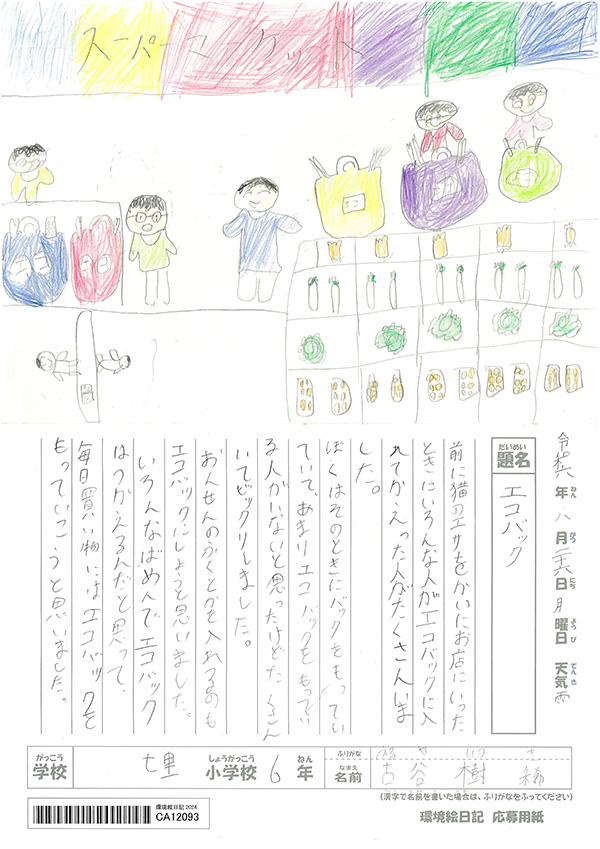 スーパーマーケット
令和六年八月二十六日月曜日 天気 雨
ねん がつ にち ようび てんき
だいめい
題名 エコバック
前に猫のエサをかいにお店にいった
ときにいろんな人がエコバックに入
れてかえった人がたくさんいま
した。
ぼくはそのときにバックをもってい
ていて、あまりエコバックをもってい
る人がいないと思ったけどたくさん
いてビックリしました。
おんせんのふくとかを入れるのも
エコバックにしようと思いました。
いろんなばめんでエコバック
はつかえるんだと思って、
毎日買い物にはエコバックを
もっていこうと思いました。
がっこう しょうがっこう ねん ふりがな
学校 七里 小学校 6年
なまえ
名前 古谷 樹 稀
(漢字で名前を書いた場合は、ふりがなをふってください)
環境絵日記2024
CA12093
環境絵日記 応募用紙